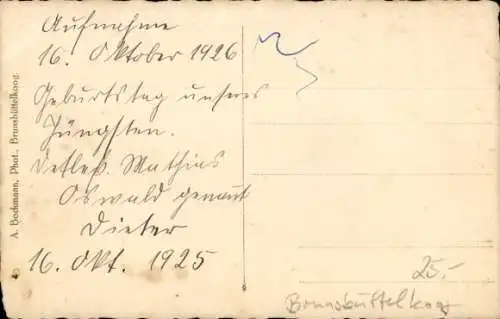 Aufnahme
16. Oktober 1926
Geburtstag unseres
Jüngsten.
Detlef. Mathias
Oswald genannt
Dieter
16. Okt. 1925
A. Bockmann, Phot., Brunsbüttelkoog.
25.-
Brunsbüttelkoog